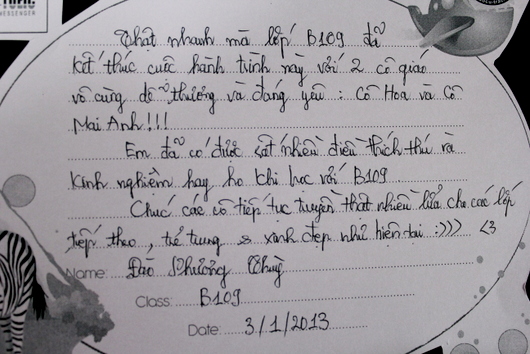 MESSENGER
Thật nhanh mà lớp B109 đã
kết thúc cuộc hành trình này với 2 cô giáo
vô cùng dễ thương và đáng yêu : Cô Hoa và Cô
Mai Anh!!!
Em đã có được rất nhiều điều thích thú và
kinh nghiệm hay ho khi học với B109
Chúc các cô tiếp tục truyền thật nhiều lửa cho các lớp
tiếp theo, trẻ trung & xinh đẹp như hiện tại :))) <3
Name: Đào Phương Thuỳ
Class: B109
Date: 3/1/2013